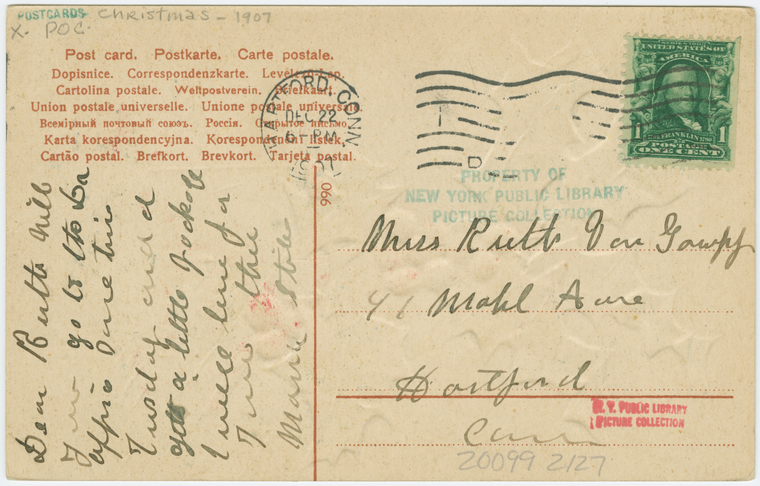 POSTCARDS - Christmas - 1907
X. POC.
Post card. Postkarte. Carte postale.
Dopisnice. Correspondenzkarte. Levelező-Lap.
Cartolina postale. Weltpostverein. Briefkaart.
Union postale universelle. Unione postale universale
Всемірный почтовый союзъ. Россія. Открытое письмо.
Karta korespondencyjna. Korespondenčni listek.
Cartão postal. Brefkort. Brevkort. Tarjeta postal.
HARTFORD, CONN.
DEC 22
6-PM
1907
D
SERIES 1902
UNITED STATES OF
AMERICA
1 1
FRANKLIN
POSTAGE
ONE CENT
PROPERTY OF
NEW YORK PUBLIC LIBRARY
PICTURE COLLECTION
066
Dear Ruth Will
you go to the
office some time
Tusday and
get a little package
I will leave for
you there
Miss Ruth Von Gumpf
41 Mahl Ave
Hartford
Conn
N. Y. PUBLIC LIBRARY
PICTURE COLLECTION
20099 2127